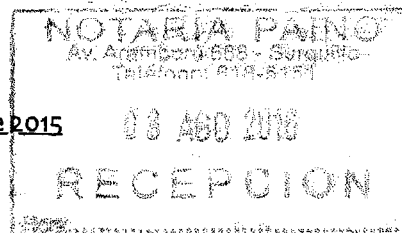 NOTARIA PAINO
Av. Aramburú 668 - Surquillo
Teléfono: 618-5151
e 2015
03 AGO 2016
RECEPCION